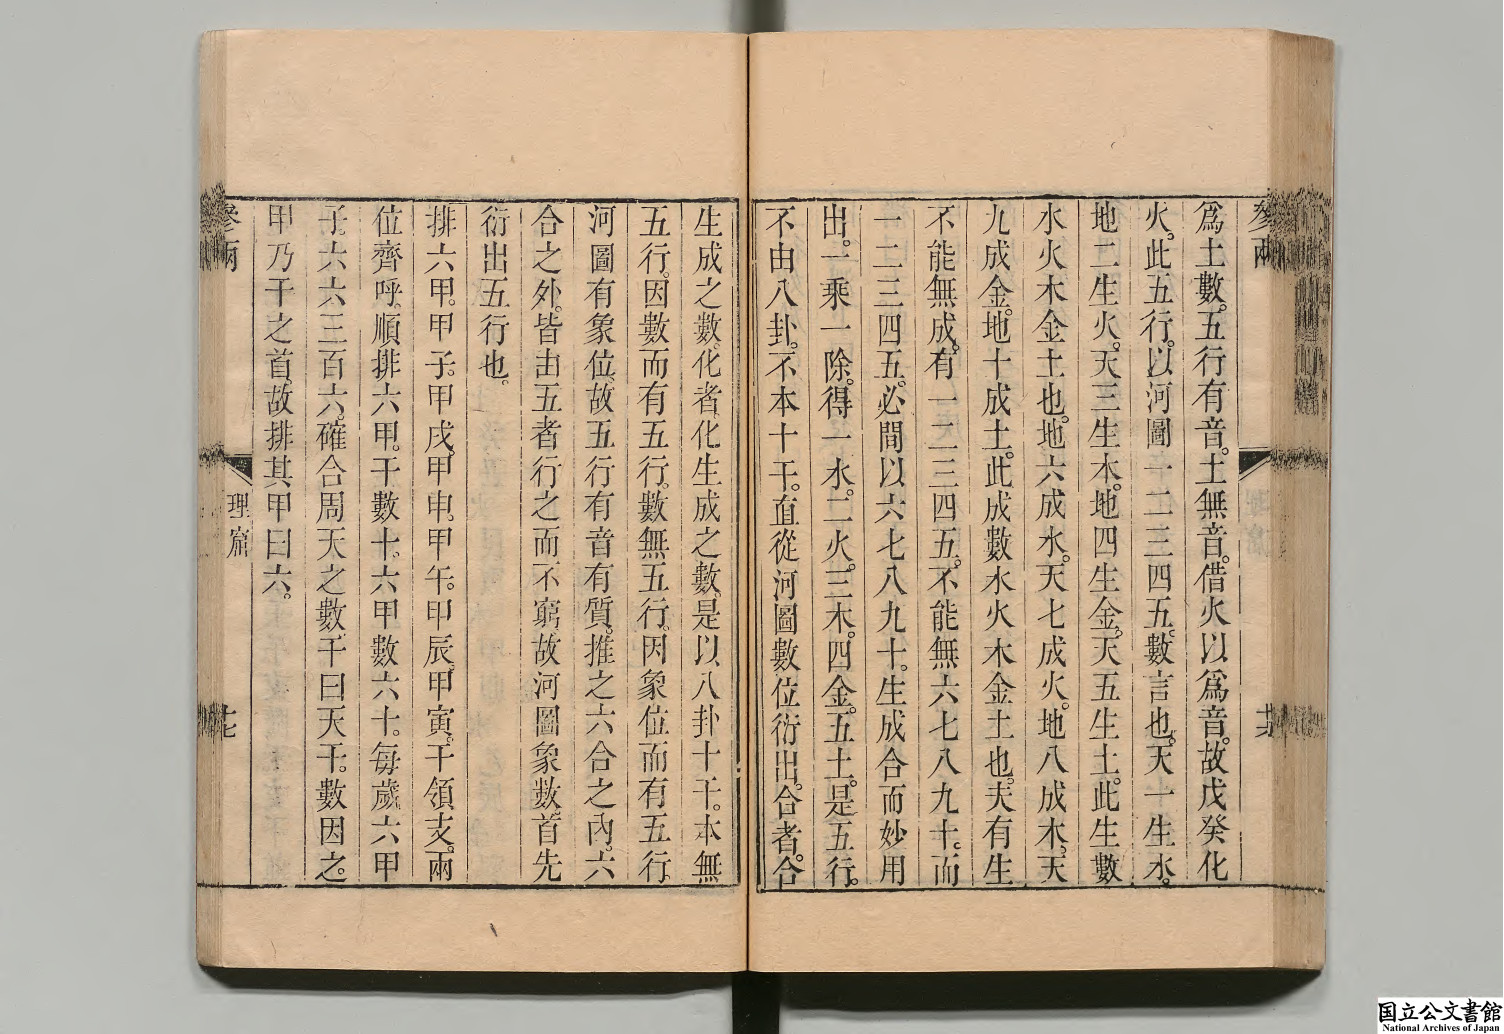 參兩
廿六
爲土數。五行有音。土無音。借火以爲音。故戊癸化
火。此五行。以河圖一二三四五。數言也。天一生水。
地二生火。天三生木。地四生金。天五生土。此生數
水火木金土也。地六成水。天七成火。地八成木。天
九成金。地十成土。此成數水火木金土也。夫有生
不能無成。有一二三四五。不能無六七八九十。而
一二三四五。必間以六七八九十。生成合而妙用
出。一乘一除。得一水。二火。三木。四金。五土。是五行。
不由八卦。不本十干。直從河圖數位衍出。合者。合
生成之數。化者。化生成之數。是以八卦十干。本無
五行。因數而有五行。數無五行。因象位而有五行。
河圖有象位。故五行有音有質。推之六合之內。六
合之外。皆由五者行之而不窮。故河圖象數。首先
衍出五行也。
排六甲。甲子。甲戌。甲申。甲午。甲辰。甲寅。干領支。兩
位齊呼。順排六甲。干數十。六甲數六十。每歲六甲
子。六六三百六。確合周天之數。干曰天干。數因之。
甲乃干之首。故排其甲曰六。
參兩
理窟
廿七
国立公文書館
National Archives of Japan